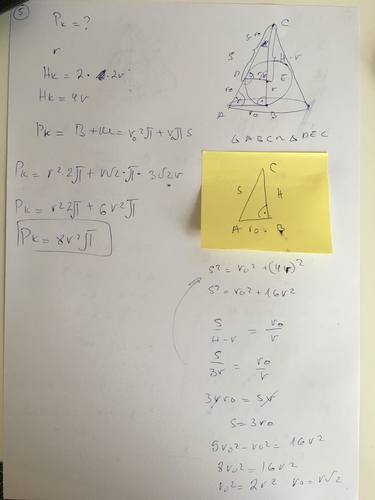 5
Pk = ?
r
Hk = 2 · 2r
Hk = 4r
Pk = B + M = r₀²π + r₀πs
Pk = r² · 2π + r√2 · π · 3√2r
Pk = r²2π + 6r²π
Pk = 8r²π
C
S
H-r
D
E
r₀
r
A
r₀
B
△ABC ~ △DEC
C
S
H
A r₀ B
s² = r₀² + (4r)²
s² = r₀² + 16r²
s/(H-r) = r₀/r
s/3r = r₀/r
3r r₀ = sr
s = 3r₀
9r₀² - r₀² = 16r²
8r₀² = 16r²
r₀² = 2r² r₀ = r√2